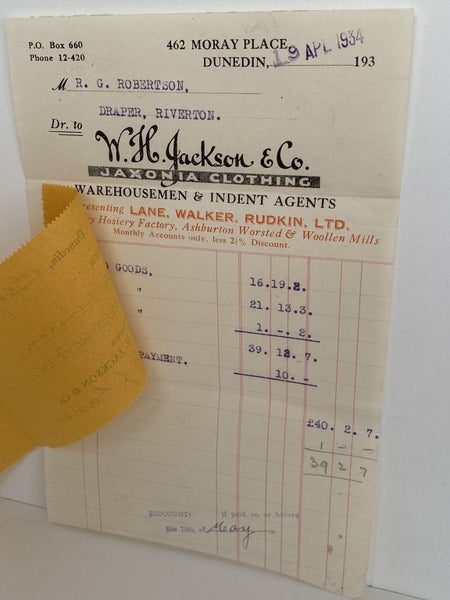 P.O. Box 660
Phone 12-420
462 MORAY PLACE,
DUNEDIN, 19 APL 1934 193
M R. G. ROBERTSON,
DRAPER, RIVERTON.
Dr. to
W. H. Jackson & Co.
JAXONIA CLOTHING
WAREHOUSEMEN & INDENT AGENTS
LANE, WALKER, RUDKIN, LTD.
Hosiery Factory, Ashburton Worsted & Woollen Mills
Monthly Accounts only, less 2½% Discount.
GOODS. 16.19.2.
" 21. 13.3.
" 1. -. 2.
39. 12. 7.
PAYMENT. 10. -
£40. 2. 7.
1 - -
39 2 7
DISCOUNT: if paid on or before
the 10th of May
Dunedin,
JACKSON & CO